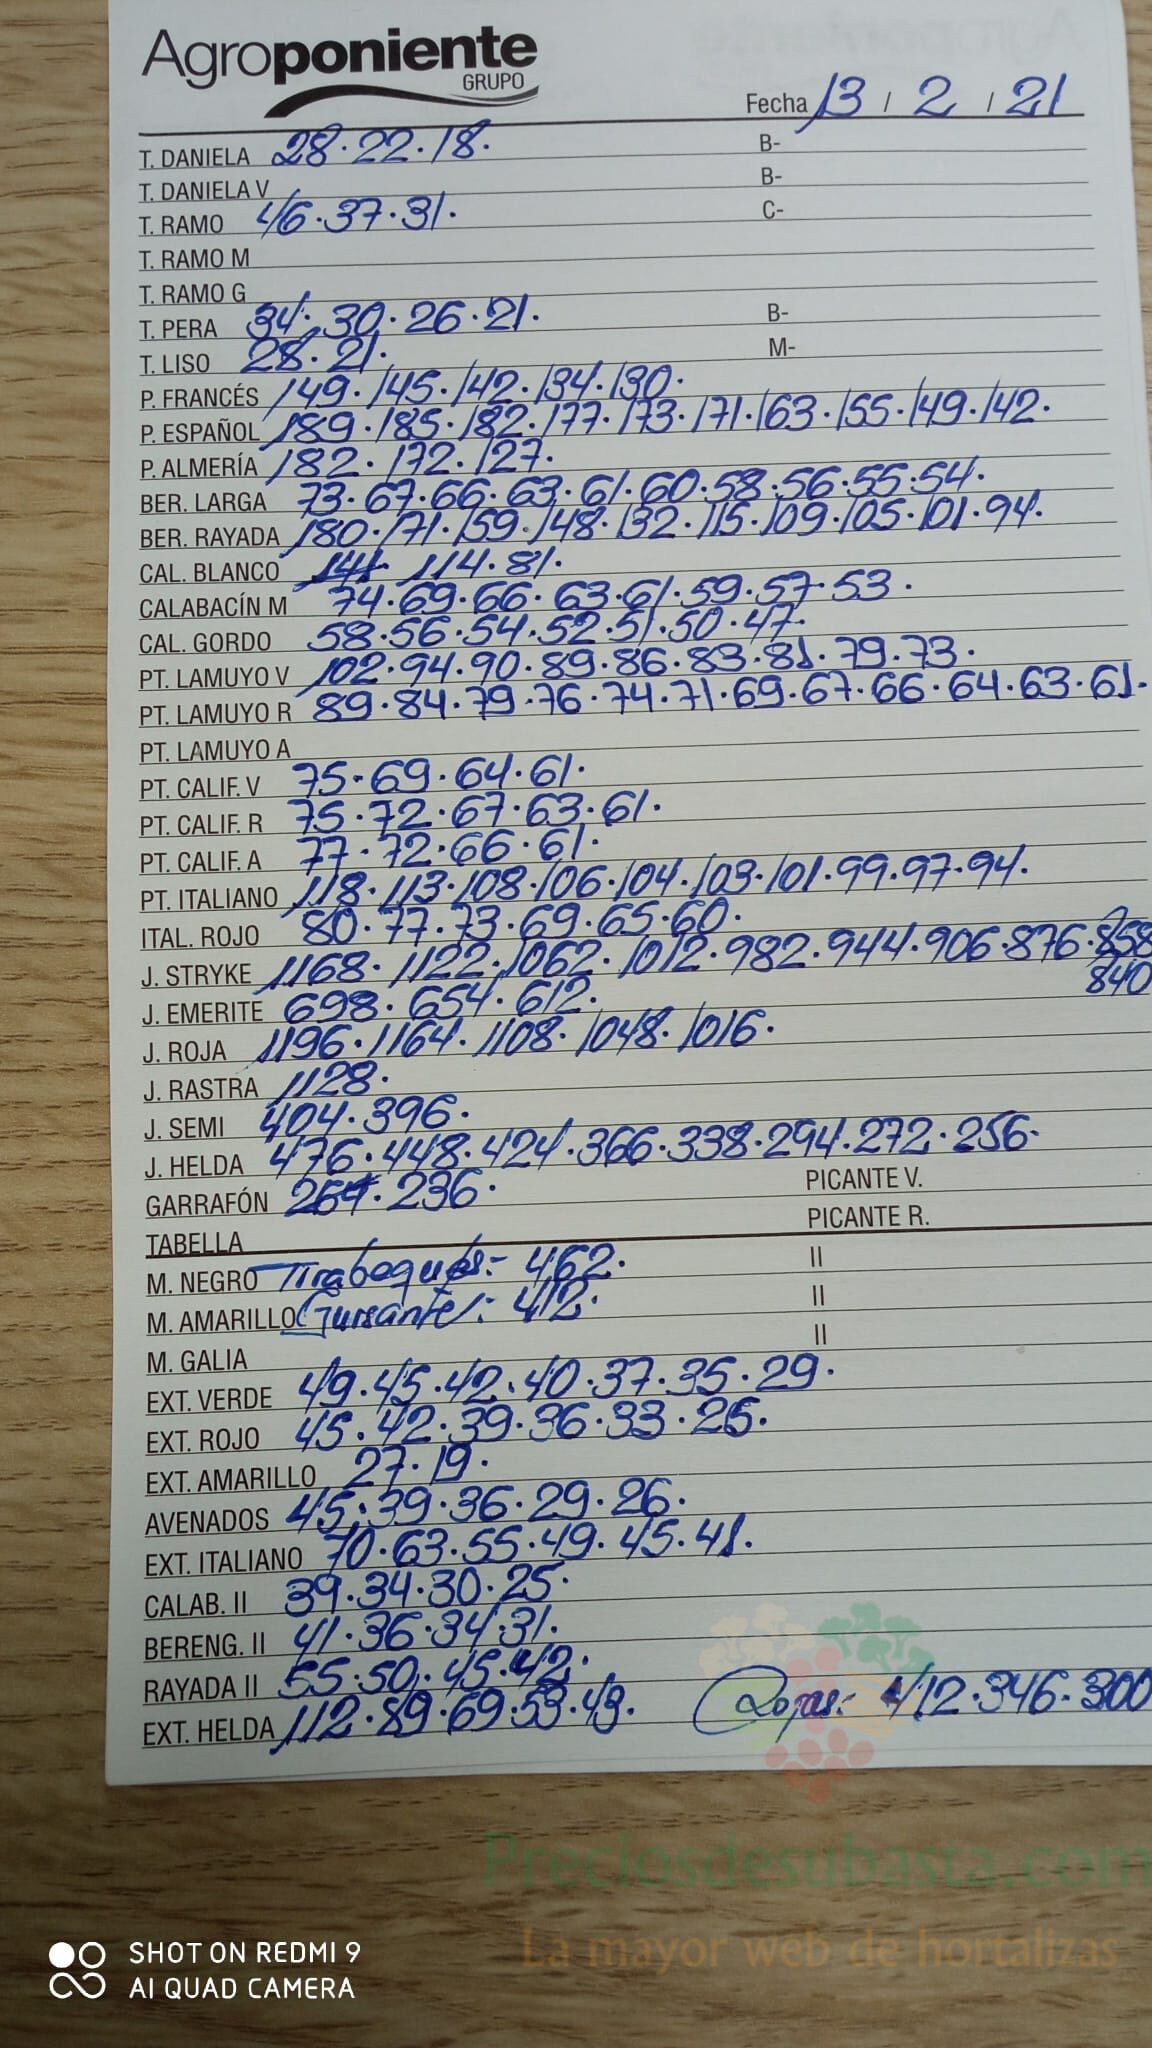 Agroponiente
GRUPO
Fecha 13 / 2 / 21
T. DANIELA 28.22.18. B-
T. DANIELA V B-
T. RAMO 46.37.31. C-
T. RAMO M
T. RAMO G
T. PERA 34.30.26.21. B-
T. LISO 28.21. M-
P. FRANCÉS 149.145.142.134.130.
P. ESPAÑOL 189.185.182.177.173.171.163.155.149.142.
P. ALMERÍA 182.172.127.
BER. LARGA 73.67.66.63.61.60.58.56.55.54.
BER. RAYADA 180.171.159.148.132.115.109.105.101.94.
CAL. BLANCO 114.81.
CALABACÍN M 74.69.66.63.61.59.57.53.
CAL. GORDO 58.56.54.52.51.50.47.
PT. LAMUYO V 102.94.90.89.86.83.81.79.73.
PT. LAMUYO R 89.84.79.76.74.71.69.67.66.64.63.61.
PT. LAMUYO A
PT. CALIF. V 75.69.64.61.
PT. CALIF. R 75.72.67.63.61.
PT. CALIF. A 77.72.66.61.
PT. ITALIANO 118.113.108.106.104.103.101.99.97.94.
ITAL. ROJO 80.77.73.69.65.60.
J. STRYKE 1168.1122.1062.1012.982.944.906.876.858
840
J. EMERITE 698.654.612.
J. ROJA 1196.1164.1108.1048.1016.
J. RASTRA 1128.
J. SEMI 404.396.
J. HELDA 476.448.424.366.338.294.272.256.
GARRAFÓN 236. PICANTE V.
TABELLA PICANTE R.
M. NEGRO Tirabeques:- 462. II
M. AMARILLO Guisante: 412. II
M. GALIA II
EXT. VERDE 49.45.42.40.37.35.29.
EXT. ROJO 45.42.39.36.33.25.
EXT. AMARILLO 27.19.
AVENADOS 45.39.36.29.26.
EXT. ITALIANO 70.63.55.49.45.41.
CALAB. II 39.34.30.25.
BERENG. II 41.36.34.31.
RAYADA II 55.50.45.42.
EXT. HELDA 112.89.69.53.43. Rojas:- 412.346.300
Preciosdesubasta.com
La mayor web de hortalizas
SHOT ON REDMI 9
AI QUAD CAMERA